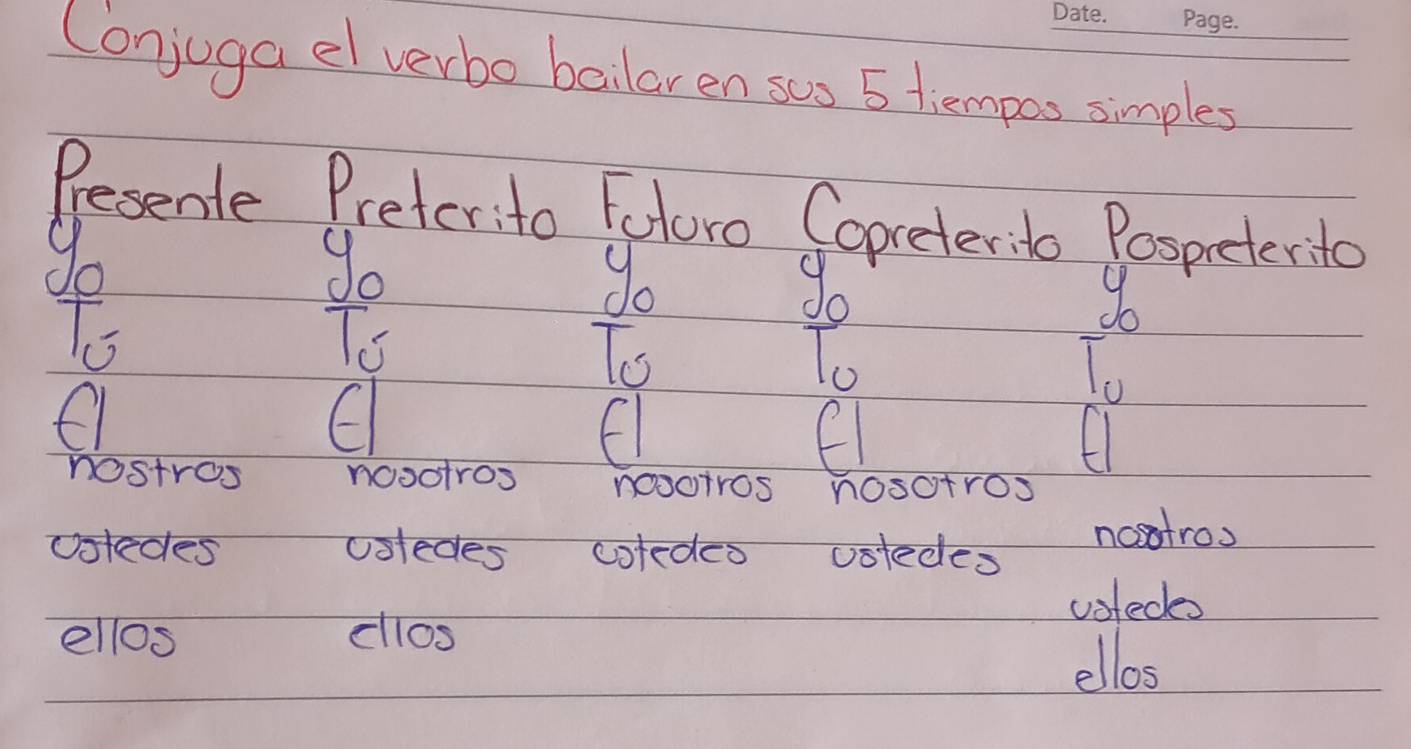 Date. Page.
Conjuga el verbo bailar en sus 5 tiempos simples
Presente Preterito Futuro Copreterito Pospreterito
yo yo yo yo yo
Tú Tú Tú Tu Tu
El El El El El
nostros nosotros nosotros nosotros nosotros
ustedes ustedes ustedes ustedes ustedes
ellos ellos ellos